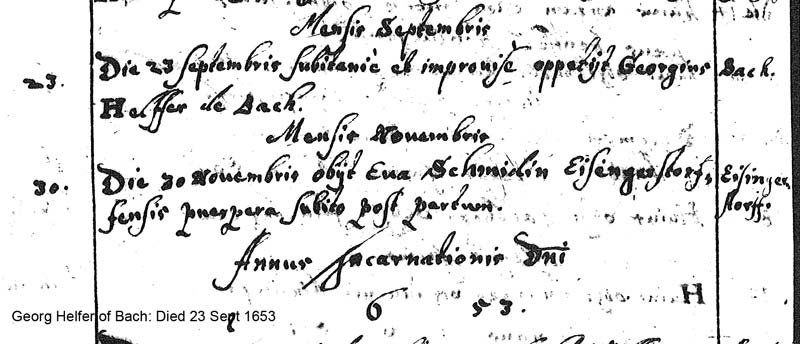 Mensis Septembris
23. Die 23 Septembris subitaniè et improvisè oppetijt Georgius Bach.
Helffer de Bach.
Mensis Novembris
30. Die 30 Novembris obijt Eva Schmidin Eisingerstorf- Eisinger
fensis puerpera subito post partum. storff.
Annus Incarnationis Dni
H
6 53.
Georg Helfer of Bach: Died 23 Sept 1653